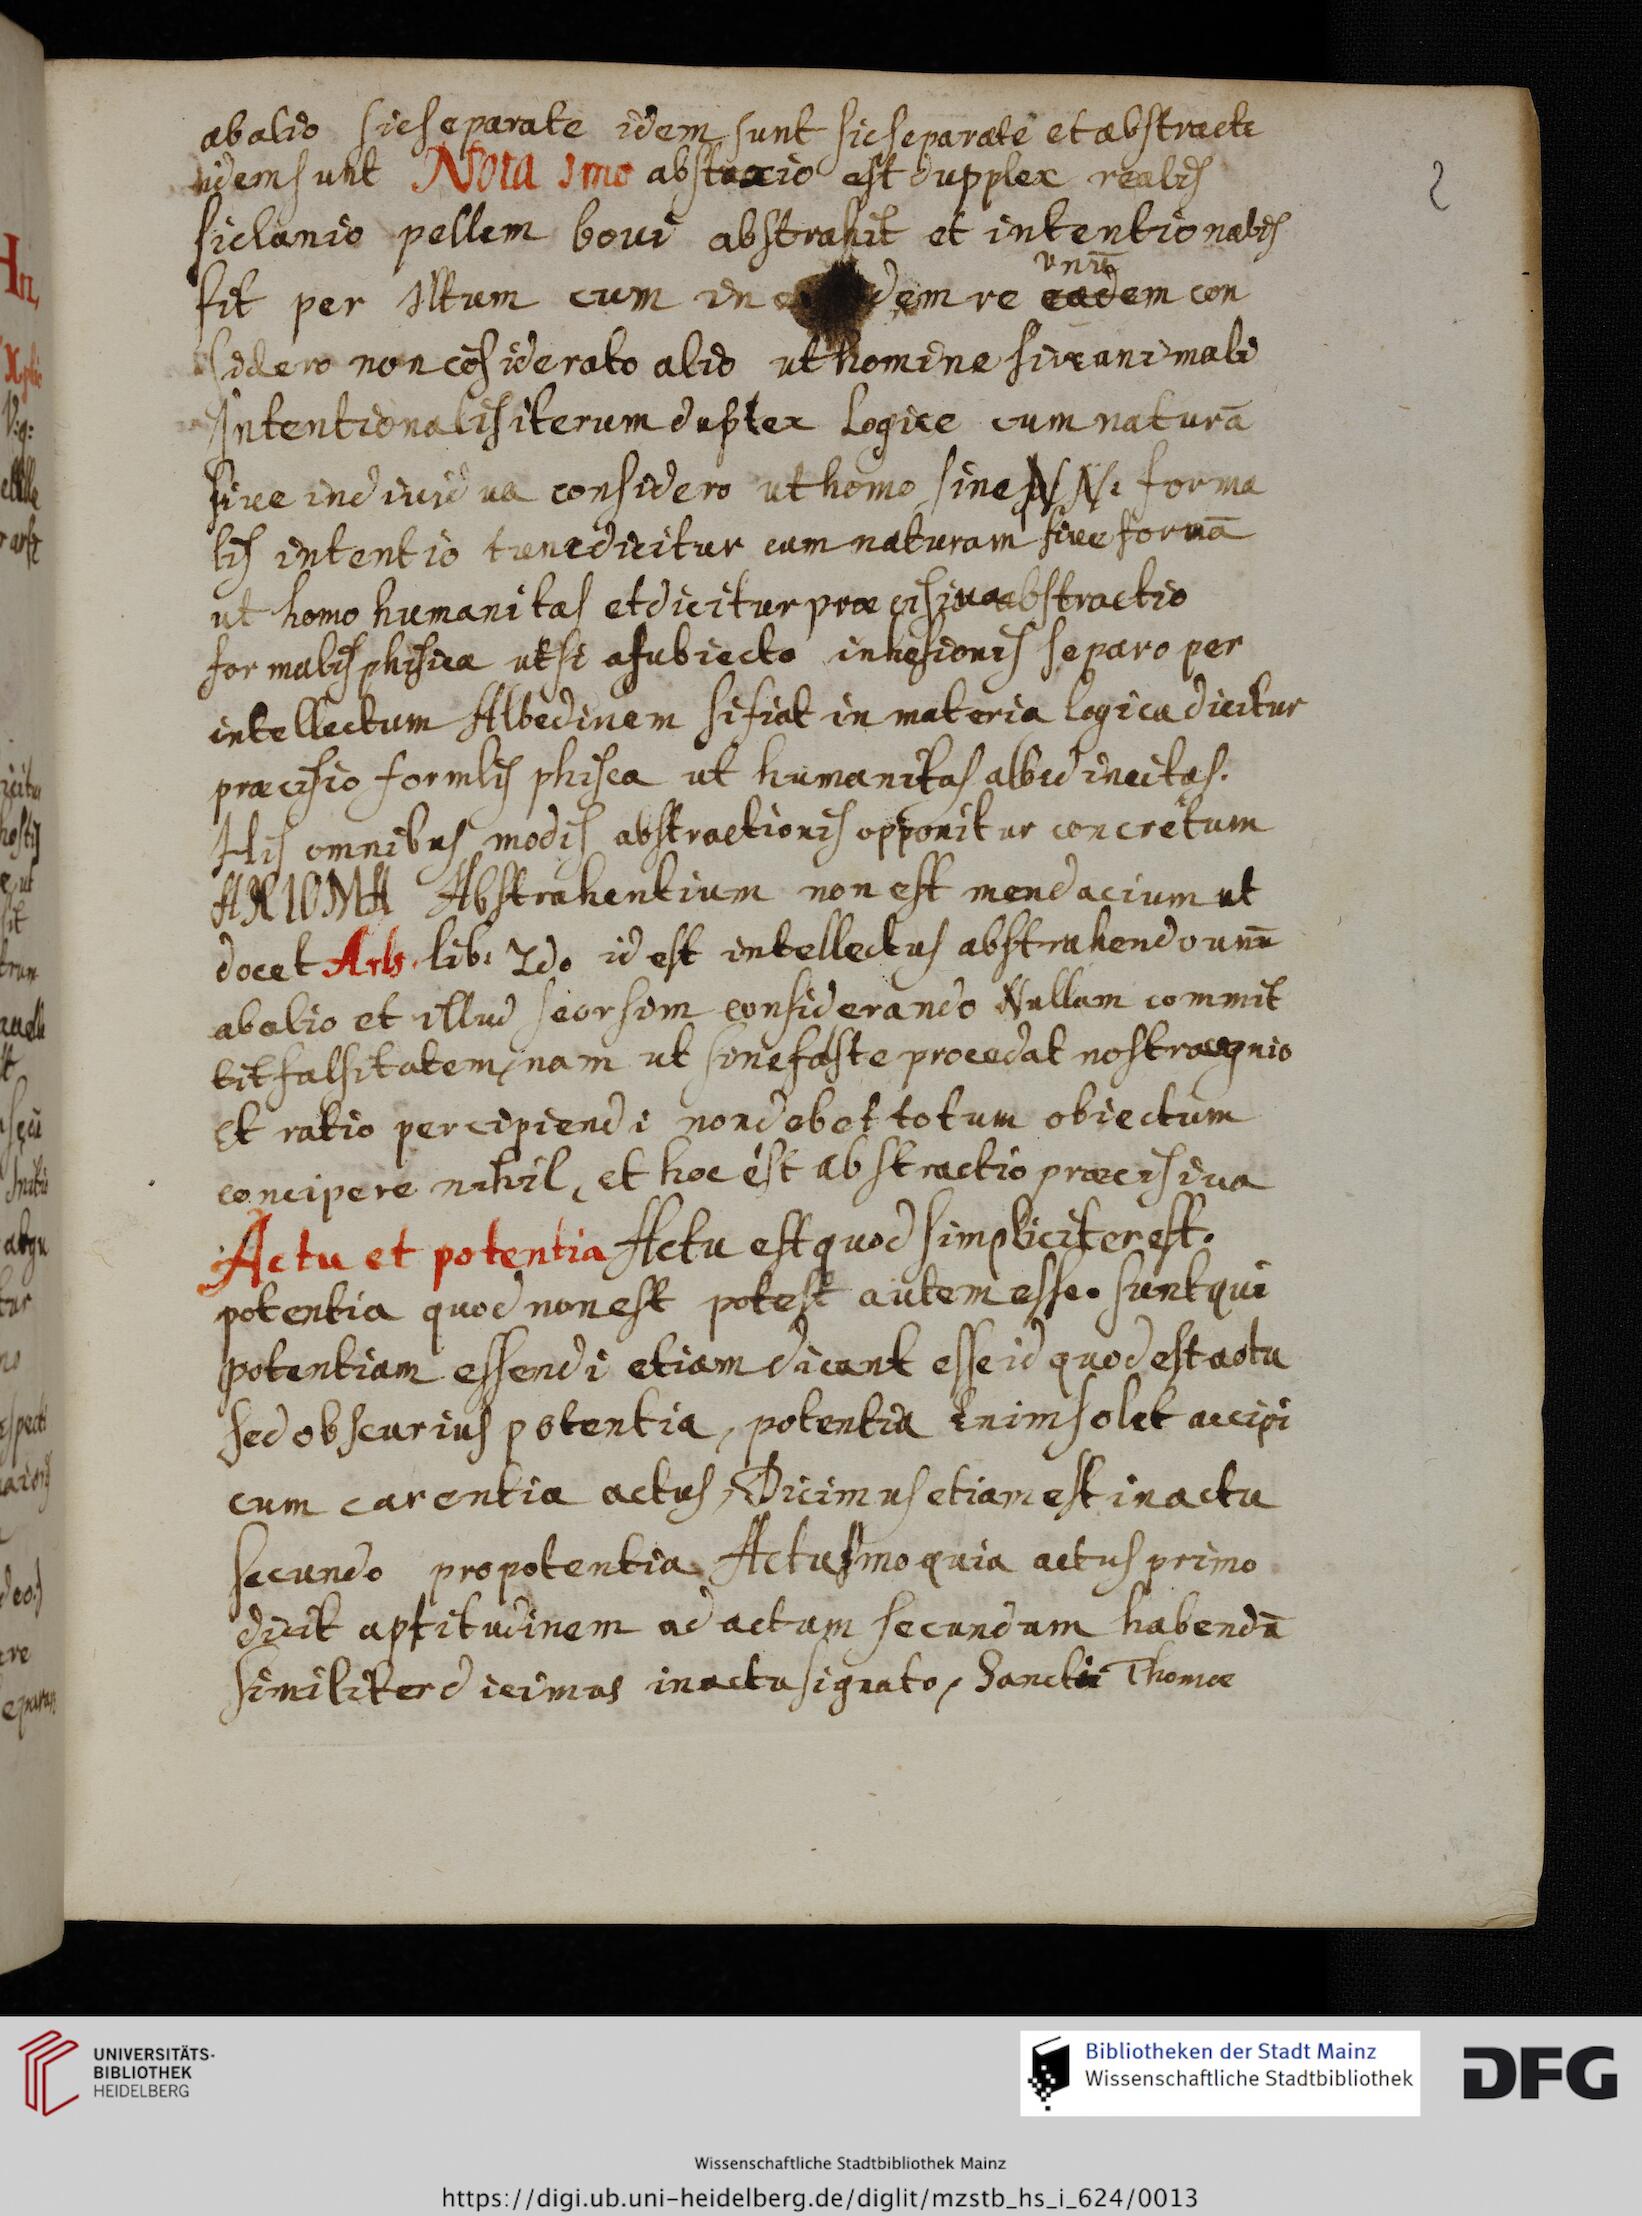 abalio sicseparate idem sunt sicseparate et abstracte
idemsunt Nota 1mo abstraxio est dupplex realis
siclanio pellem boui abstrahit et intentionalis
unū
fit per Illum cum in dem re eadem con
sidero non cōsiderato alio ut homine siue animali
Intentionalis iterum duplex Logice cum naturā
siue indiuidua considero ut homo sine N N. forma
lis intentio tuncdicitur cum naturam siue formā
ut homo humanitas et dicitur præcisiua abstractio
formalis phisica ut si a subiecto inhesionis separo per
intellectum Albedinem si fiat in materia logica dicitur
præcisio formlis phisca ut humanitas albedineitas.
His omnibus modis abstractionis opponitur concretum
AXIOMA Abstrahentium non est mendacium ut
docet Arls. lib: 2do. id est intellectus abstrahendo unū
abalio et illud seorsim considerando Nullam commit
tit falsitatem, nam ut procedat nostra
Et ratio percipiendi non debet totum obiectum
concipere nihil, et hoc est abstractio præcisiua
Actu et potentia Actu est quod simpliciter est.
potentia quod non est potest autem esse. sunt qui
potentiam essendi etiam dicant esse id quod est actu
sed obscurius potentia, potentia Enim solet accipi
cum carentia actus, Dicimus etiam est in actu
secundo pro potentia Actu 1mo quia actus primo
dicit aptitudinem ad actum secundum habendū
similiter dicimus in actu signato, Sancti Thomæ
2
UNIVERSITÄTS-
BIBLIOTHEK
HEIDELBERG
Bibliotheken der Stadt Mainz
Wissenschaftliche Stadtbibliothek
DFG
Wissenschaftliche Stadtbibliothek Mainz
https://digi.ub.uni-heidelberg.de/diglit/mzstb_hs_i_624/0013